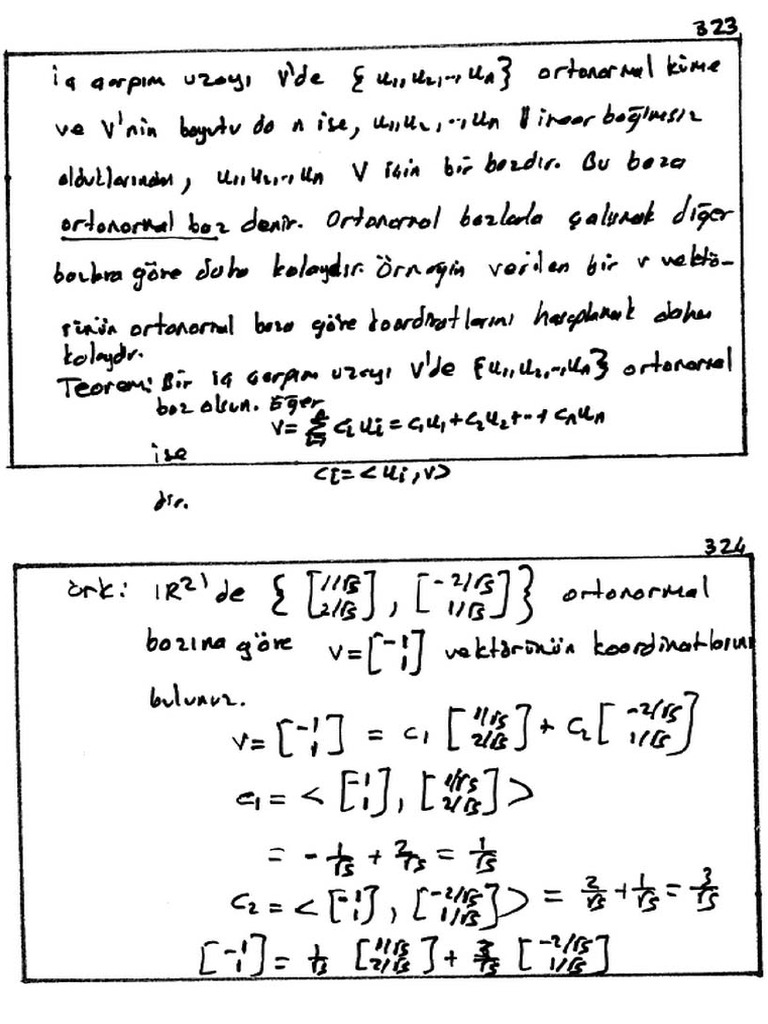 323
iç çarpım uzayı V'de { u₁, u₂, .., uₙ } ortonormal küme
ve V'nin boyutu da n ise, u₁, u₂, .., uₙ lineer bağımsız
olduklarından, u₁, u₂, .., uₙ V için bir bazdır. Bu baza
ortonormal baz denir. Ortonormal bazlarla çalışmak diğer
bazlara göre daha kolaydır. Örneğin verilen bir v vektö-
rünün ortonormal baza göre koordinatlarını hesaplamak daha
kolaydır.
Teorem: Bir iç çarpım uzayı V'de {u₁, u₂, .., uₙ} ortonormal
baz olsun. Eğer
v = Σ cᵢ uᵢ = c₁u₁ + c₂u₂ + ·· + cₙuₙ
ise
cᵢ = < uᵢ, v >
dir.
324
örk: IR²'de { [1/√5 2/√5], [-2/√5 1/√5] } ortonormal
bazına göre v = [-1 1] vektörünün koordinatlarını
bulunuz.
v = [-1 1] = c₁ [1/√5 2/√5] + c₂ [-2/√5 1/√5]
c₁ = < [-1 1], [1/√5 2/√5] >
= - 1/√5 + 2/√5 = 1/√5
c₂ = < [-1 1], [-2/√5 1/√5] > = 2/√5 + 1/√5 = 3/√5
[-1 1] = 1/√5 [1/√5 2/√5] + 3/√5 [-2/√5 1/√5]